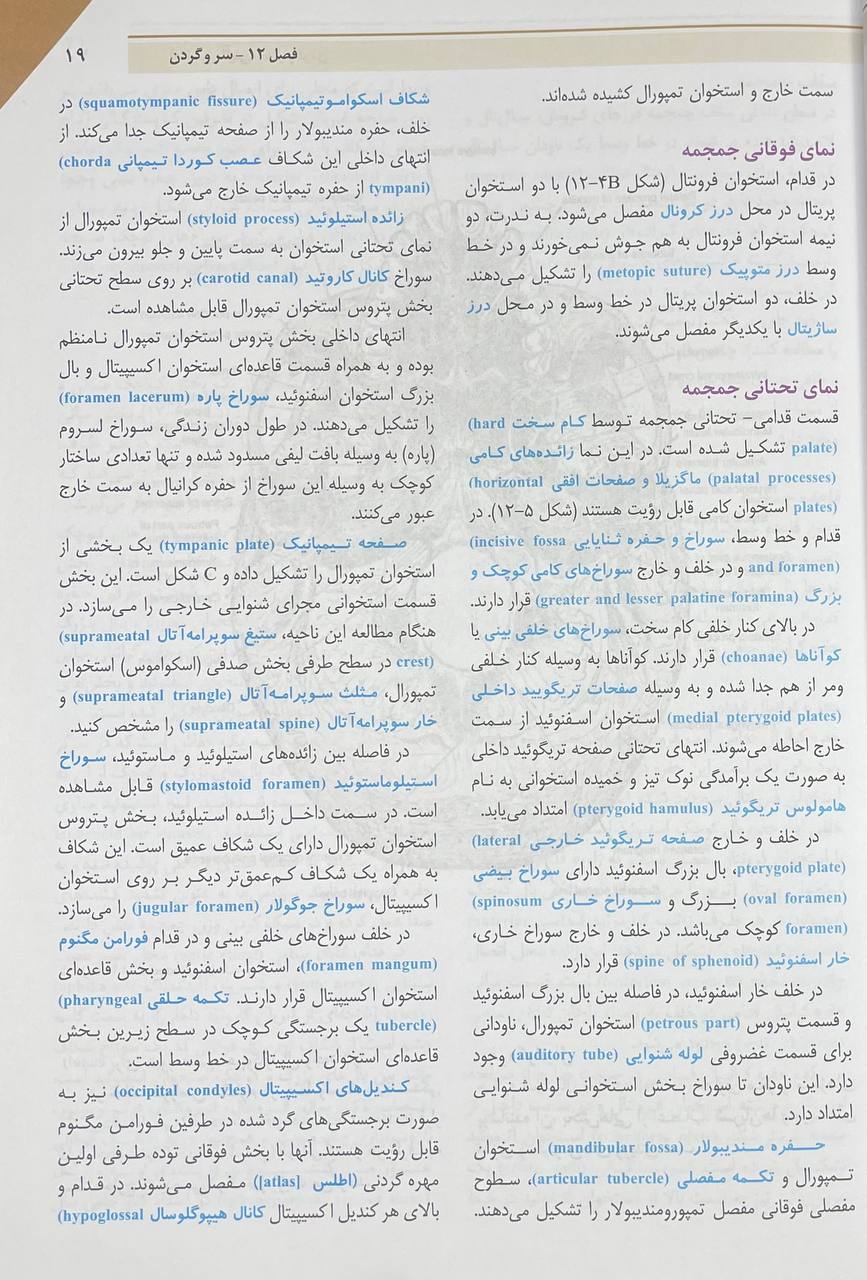 فصل ۱۲ – سر و گردن
۱۹
سمت خارج و استخوان تمپورال کشیده شده‌اند.
نمای فوقانی جمجمه
در قدام، استخوان فرونتال (شکل ۱۲-۴B) با دو استخوان
پریتال در محل درز کرونال مفصل می‌شود. به ندرت، دو
نیمه استخوان فرونتال به هم جوش نمی‌خورند و در خط
وسط درز متوپیک (metopic suture) را تشکیل می‌دهند.
در خلف، دو استخوان پریتال در خط وسط و در محل درز
ساژیتال با یکدیگر مفصل می‌شوند.
نمای تحتانی جمجمه
قسمت قدامی- تحتانی جمجمه توسط کام سخت (hard
palate) تشکیل شده است. در این نما زائده‌های کامی
(palatal processes) ماگزیلا و صفحات افقی (horizontal
plates) استخوان کامی قابل رؤیت هستند (شکل ۵-۱۲). در
قدام و خط وسط، سوراخ و حفره ثنایایی (incisive fossa
and foramen) و در خلف و خارج سوراخ‌های کامی کوچک و
بزرگ (greater and lesser palatine foramina) قرار دارند.
در بالای کنار خلفی کام سخت، سوراخ‌های خلفی بینی یا
کوآناها (choanae) قرار دارند. کوآناها به وسیله کنار خلفی
ومر از هم جدا شده و به وسیله صفحات تریگویید داخلی
(medial pterygoid plates) استخوان اسفنوئید از سمت
خارج احاطه می‌شوند. انتهای تحتانی صفحه تریگوئید داخلی
به صورت یک برآمدگی نوک تیز و خمیده استخوانی به نام
هامولوس تریگوئید (pterygoid hamulus) امتداد می‌یابد.
در خلف و خارج صفحه تریگوئید خارجی (lateral
pterygoid plate)، بال بزرگ اسفنوئید دارای سوراخ بیضی
(oval foramen) بزرگ و سوراخ خاری (spinosum
foramen) کوچک می‌باشد. در خلف و خارج سوراخ خاری،
خار اسفنوئید (spine of sphenoid) قرار دارد.
در خلف خار اسفنوئید، در فاصله بین بال بزرگ اسفنوئید
و قسمت پتروس (petrous part) استخوان تمپورال، ناودانی
برای قسمت غضروفی لوله شنوایی (auditory tube) وجود
دارد. این ناودان تا سوراخ بخش استخوانی لوله شنوایی
امتداد دارد.
حفره مندیبولار (mandibular fossa) استخوان
تمپورال و تکمه مفصلی (articular tubercle)، سطوح
مفصلی فوقانی مفصل تمپورومندیبولار را تشکیل می‌دهند.
شکاف اسکواموتیمپانیک (squamotympanic fissure) در
خلف، حفره مندیبولار را از صفحه تیمپانیک جدا می‌کند. از
انتهای داخلی این شکاف عصب کوردا تیمپانی (chorda
tympani) از حفره تیمپانیک خارج می‌شود.
زائده استیلوئید (styloid process) استخوان تمپورال از
نمای تحتانی استخوان به سمت پایین و جلو بیرون می‌زند.
سوراخ کانال کاروتید (carotid canal) بر روی سطح تحتانی
بخش پتروس استخوان تمپورال قابل مشاهده است.
انتهای داخلی بخش پتروس استخوان تمپورال نامنظم
بوده و به همراه قسمت قاعده‌ای استخوان اکسیپیتال و بال
بزرگ استخوان اسفنوئید، سوراخ پاره (foramen lacerum)
را تشکیل می‌دهند. در طول دوران زندگی، سوراخ لسروم
(پاره) به وسیله بافت لیفی مسدود شده و تنها تعدادی ساختار
کوچک به وسیله این سوراخ از حفره کرانیال به سمت خارج
عبور می‌کنند.
صفحه تیمپانیک (tympanic plate) یک بخشی از
استخوان تمپورال را تشکیل داده و C شکل است. این بخش
قسمت استخوانی مجرای شنوایی خارجی را می‌سازد. در
هنگام مطالعه این ناحیه، ستیغ سوپرامه‌آتال (suprameatal
crest) در سطح طرفی بخش صدفی (اسکواموس) استخوان
تمپورال، مثلث سوپرامه‌آتال (suprameatal triangle) و
خار سوپرامه‌آتال (suprameatal spine) را مشخص کنید.
در فاصله بین زائده‌های استیلوئید و ماستوئید، سوراخ
استیلوماستوئید (stylomastoid foramen) قابل مشاهده
است. در سمت داخل زائده استیلوئید، بخش پتروس
استخوان تمپورال دارای یک شکاف عمیق است. این شکاف
به همراه یک شکاف کم‌عمق‌تر دیگر بر روی استخوان
اکسیپیتال، سوراخ جوگولار (jugular foramen) را می‌سازد.
در خلف سوراخ‌های خلفی بینی و در قدام فورامن مگنوم
(foramen mangum)، استخوان اسفنوئید و بخش قاعده‌ای
استخوان اکسیپیتال قرار دارند. تکمه حلقی (pharyngeal
tubercle) یک برجستگی کوچک در سطح زیرین بخش
قاعده‌ای استخوان اکسیپیتال در خط وسط است.
کندیل‌های اکسیپیتال (occipital condyles) نیز به
صورت برجستگی‌های گرد شده در طرفین فورامن مگنوم
قابل رؤیت هستند. آنها با بخش فوقانی توده طرفی اولین
مهره گردنی (اطلس [atlas]) مفصل می‌شوند. در قدام و
بالای هر کندیل اکسیپیتال کانال هیپوگلوسال (hypoglossal